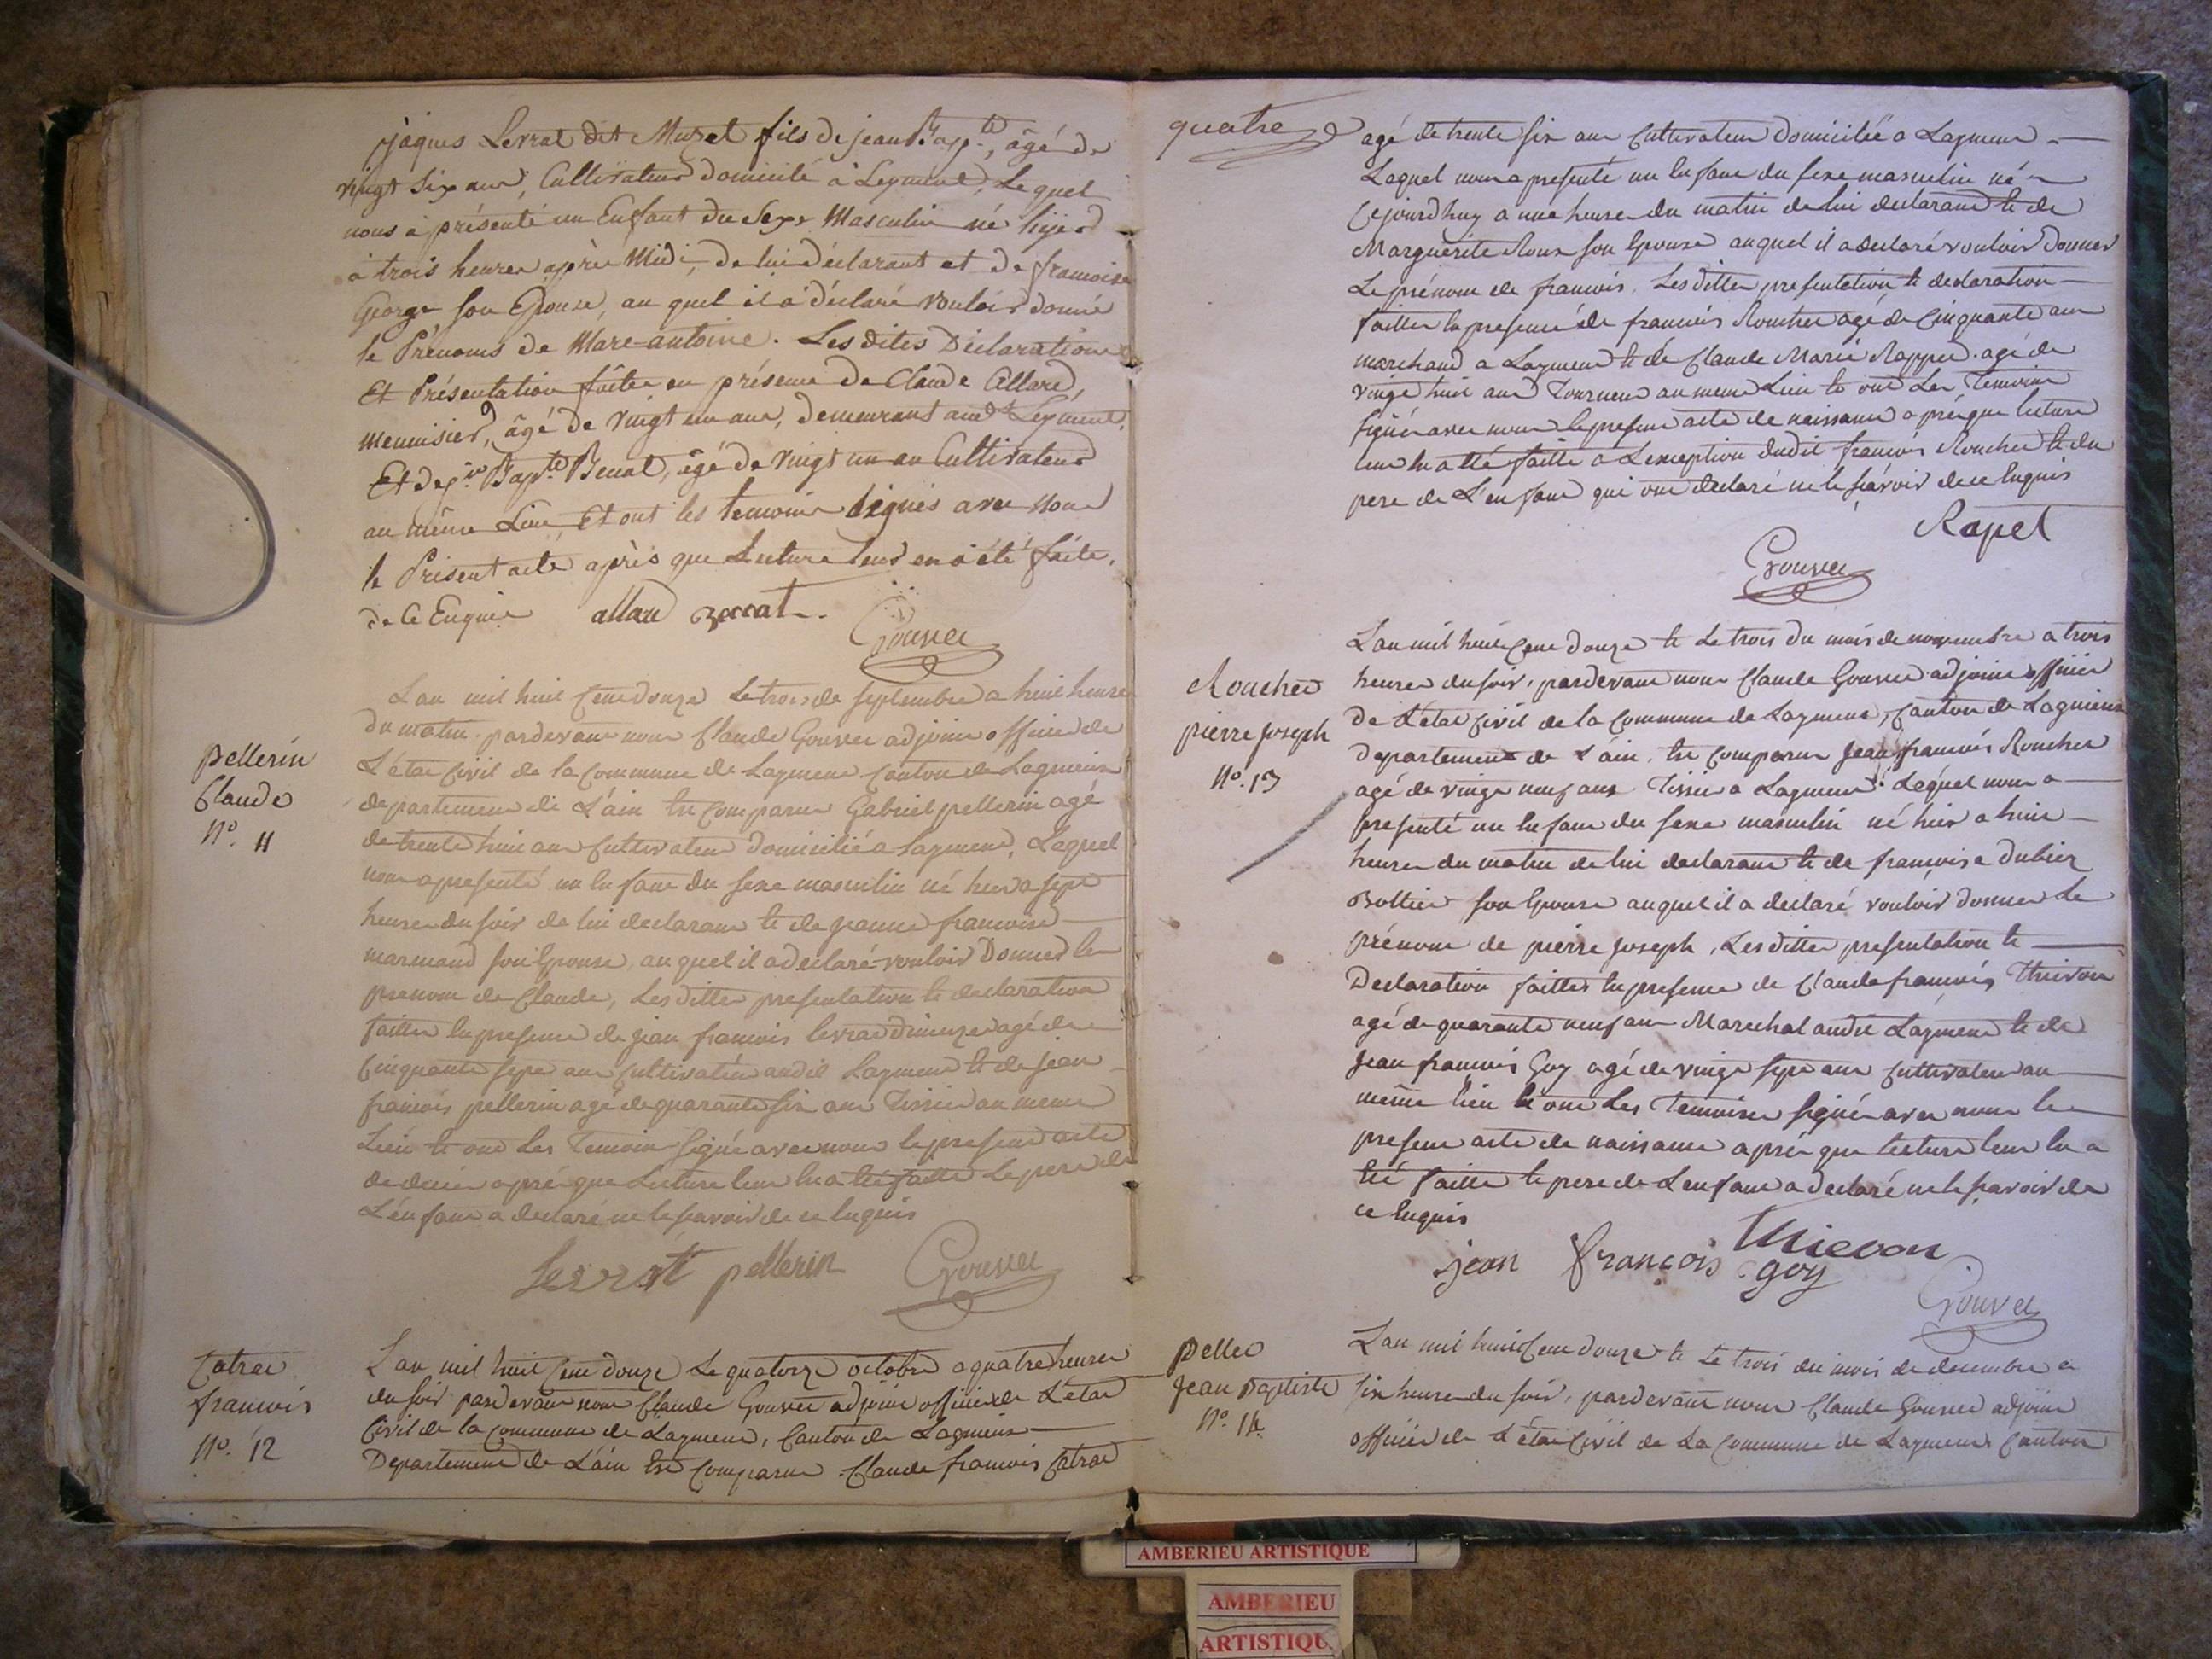 jâques Levrat dit Muzet fils de jean Bap.te, âgé de
vingt six ans, Cultivateur domicilé à Leyment, Lequel
nous à présenté un Enfant du Sexe Masculin né hyer
à trois heures après Midi, de lui déclarant et de francoise
George son Epouse, au quel il à déclaré vouloir donné
le Prénoms de Marc-antoine. Les dites Déclarations
Et Présentation faites en présence de Claude Allard,
menuisier, âgé de vingt un ans, demeurant aud.t Leyment,
Et de j.n Bap.te Benat, âgé de vingt un an Cultivateur
au même Lieu, Et ont les temoins signés avec nous
le Présent acte après que Lecture leur en à été faite.
de Ce Enquis allard
Gouvet
Lan mil huit Cent douze Le trois de septembre a huit heures
du matin pardevant nous Claude Gouvet adjoint officier de
L'état Civil de la Commune de Laymens Canton de Lagnieux
departement de L'ain Est Comparu Gabriel pellerin agé
de trente huit ans Cultivateur domicilié a Laymens, Laquel
nous a presenté un Enfant du sexe masculin né hier a sept
heures du soir de lui declarant Et de jeanne francoise
marmand son Epouse, auquel il a declaré vouloir Donner le
prenom de Claude, Les dittes presentation Et declaration
faittes En presence de jean francois levrat agé de
Cinquante sept ans Cultivateur audit Laymens Et de jean
francois pellerin agé de quarante six ans Tissier au meme
Lieu Et ont Les Temoins signé avec nous le present acte
de deces aprés que Lecture leur En a Eté faitte Le pere de
L'enfant a declaré ne le scavoir de ce Enquis
Levrat pellerin Gouvet
pellerin
Claude
N.o 11
Catrat
francois
N.o 12
Lan mil huit Cent douze Le quatorze octobre a quatre heures
du soir pardevant nous Claude Gouvet adjoint officier de L'état
Civil de la Commune de Laymens, Canton de Lagnieux
Departement de L'ain Est Comparu Claude francois Catrat
quatre
agé de trente six ans Cultivateur domicilié a Laymens
Laquel nous a presenté un Enfant du sexe masculin né
Cejourdhuy a une heure du matin de lui declarant Et de
Marguerite Roux son Epouse auquel il a declaré vouloir Donner
Le prénom de francois. Les dittes presentation Et declaration
faittes En presence de francois Roucher agé de Cinquante ans
marchand a Laymens Et de Claude Marie Rappet agé de
vingt huit ans Tourneur au meme Lieu Et ont Les Temoins
signé avec nous le present acte de naissance aprés que lecture
leur En a Eté faitte a L'exception dudit francois Roucher Et du
pere de L'enfant qui ont declaré ne le scávoir de ce Enquis
Rapet
Gouvet
Roucher
pierre joseph
N.o 13
Lan mil huit Cent douze Et Le trois du mois de novembre a trois
heures du soir, pardevant nous Claude Gouvet adjoint officier
de L'état Civil de la Commune de Laymens, Canton de Lagnieux
departement de L'ain. Est Comparu jean francois Roucher
agé de vingt neuf ans Tissier a Laymens. Laquel nous a
presenté un Enfant du sexe masculin né hier a huit
heures du matin de lui declarant Et de francoise Dubiez
Bottier son Epouse auquel il a declaré vouloir donner le
prénom de pierre joseph, Les ditte presentation Et
Declaration faittes En presence de Claude francois Thievon
agé de quarante neuf ans Marechal audit Laymens Et de
jean francois Goy agé de vingt sept ans Cultivateur au
même lieu Et ont Les Temoins signé avec nous le
present acte de naissance aprés que lecture leur En a
Eté faitte le pere de L'enfant a declaré ne le scavoir de
ce Enquis
Thievon
jean françois goy
Gouvet
pellet
jean Baptiste
N.o 14
Lan mil huit Cent douze Et Le trois du mois de decembre a
six heures du soir, pardevant nous Claude Gouvet adjoint
officier de L'état Civil de La Commune de Laymens Canton
AMBERIEU ARTISTIQUE
AMBERIEU
ARTISTIQU